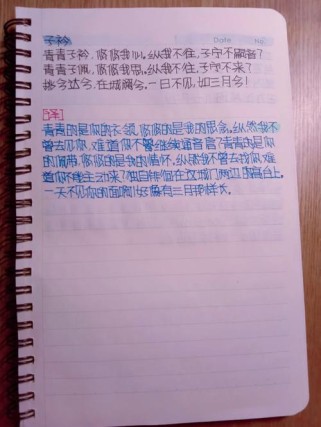 子衿
Date No.
青青子衿，悠悠我心，纵我不往，子宁不嗣音？
青青子佩，悠悠我思，纵我不往，子宁不来？
挑兮达兮，在城阙兮，一日不见，如三月兮！
[译]
青青的是你的衣领，悠悠的是我的思念，纵然我不
曾去见你，难道你不曾继续通音信？青青的是你
的佩带，悠悠的是我的情怀，纵然我不曾去找你，难
道你不能主动来？独自徘徊在这城门两边的高台上，
一天不见你的面啊！好像有三月那样长。